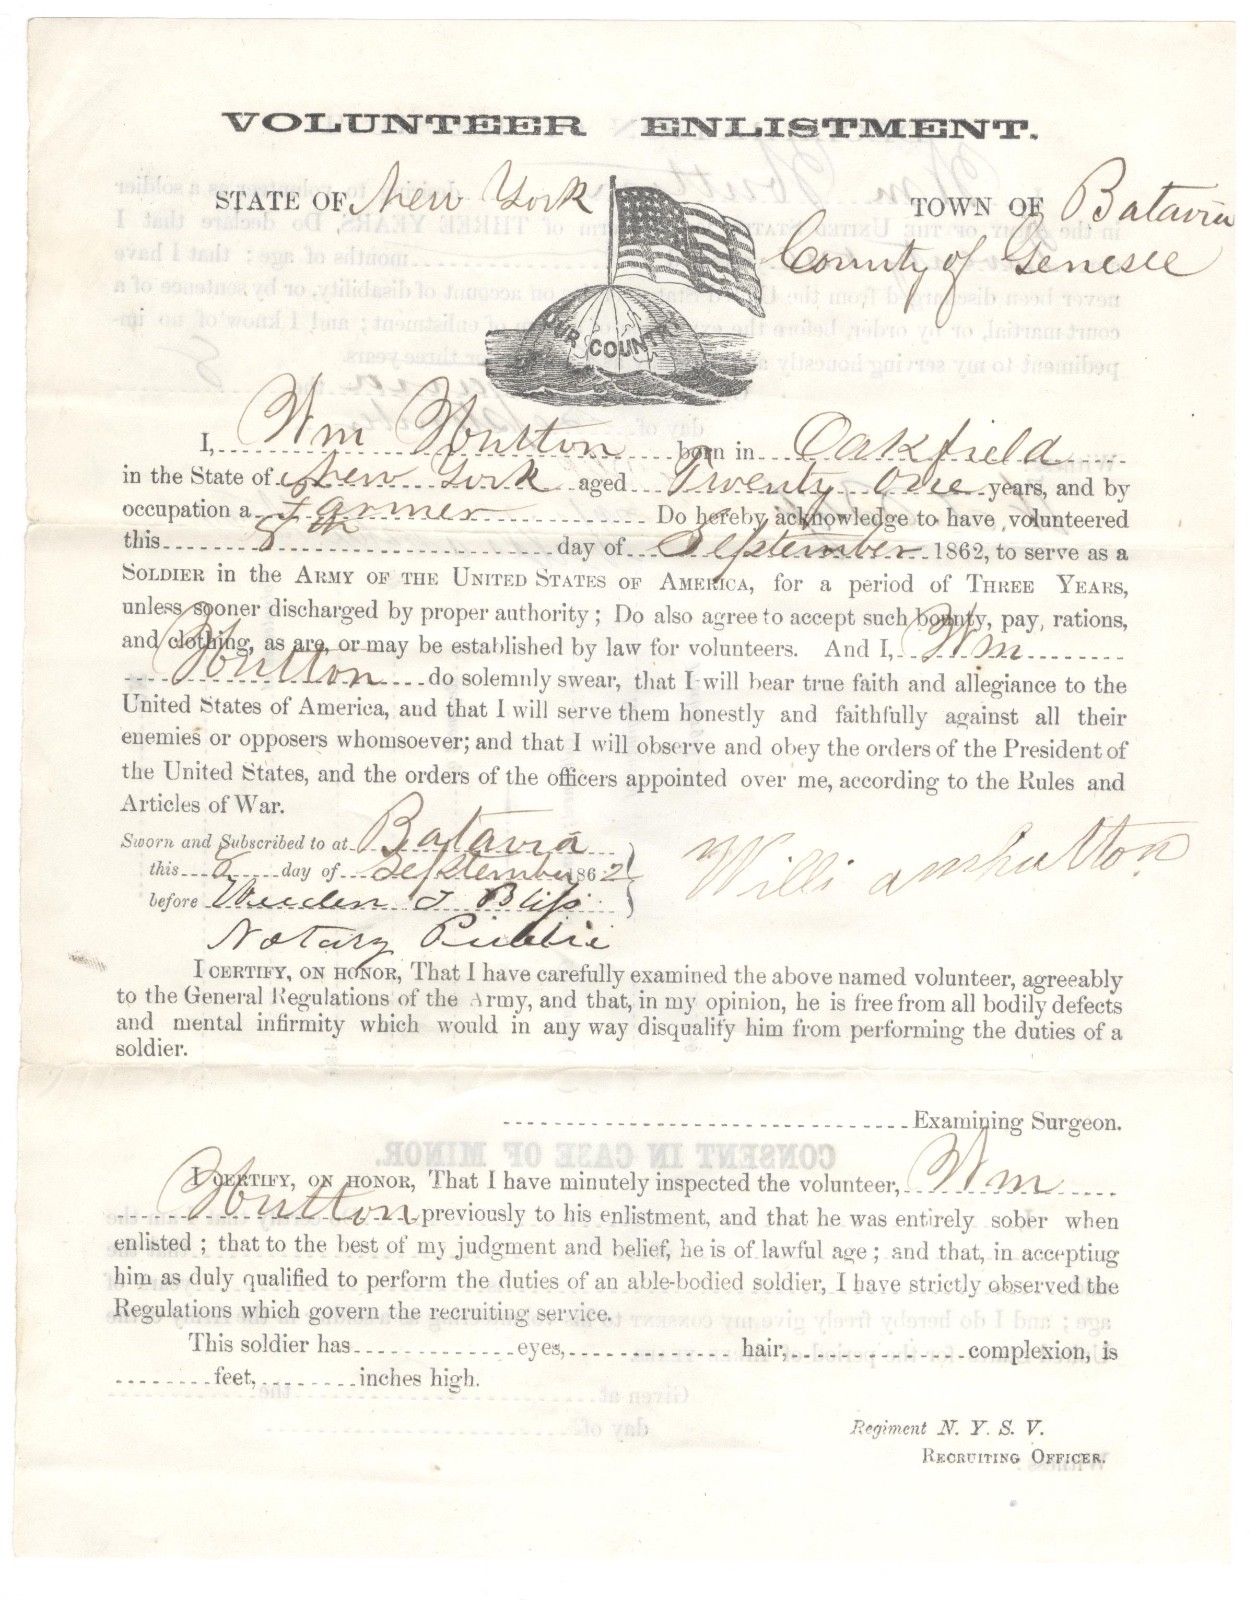 VOLUNTEER ENLISTMENT.
STATE OF New York TOWN OF Batavia
County of Genesee
OUR COUNTRY
I, Wm Hutton born in Oakfield
in the State of New York aged Twenty One years, and by
occupation a Farmer Do hereby acknowledge to have volunteered
this 8th day of September 1862, to serve as a
SOLDIER in the ARMY OF THE UNITED STATES OF AMERICA, for a period of THREE YEARS,
unless sooner discharged by proper authority; Do also agree to accept such bounty, pay, rations,
and clothing, as are, or may be established by law for volunteers. And I, Wm
Hutton do solemnly swear, that I will bear true faith and allegiance to the
United States of America, and that I will serve them honestly and faithfully against all their
enemies or opposers whomsoever; and that I will observe and obey the orders of the President of
the United States, and the orders of the officers appointed over me, according to the Rules and
Articles of War.
Sworn and Subscribed to at Batavia
this 8 day of September 1862
before T Bliss
Notary Public
William hutton
I CERTIFY, ON HONOR, That I have carefully examined the above named volunteer, agreeably
to the General Regulations of the Army, and that, in my opinion, he is free from all bodily defects
and mental infirmity which would in any way disqualify him from performing the duties of a
soldier.
Examining Surgeon.
I CERTIFY, ON HONOR, That I have minutely inspected the volunteer, Wm
Hutton previously to his enlistment, and that he was entirely sober when
enlisted; that to the best of my judgment and belief, he is of lawful age; and that, in accepting
him as duly qualified to perform the duties of an able-bodied soldier, I have strictly observed the
Regulations which govern the recruiting service.
This soldier has eyes, hair, complexion, is
feet, inches high.
Regiment N. Y. S. V.
RECRUITING OFFICER.